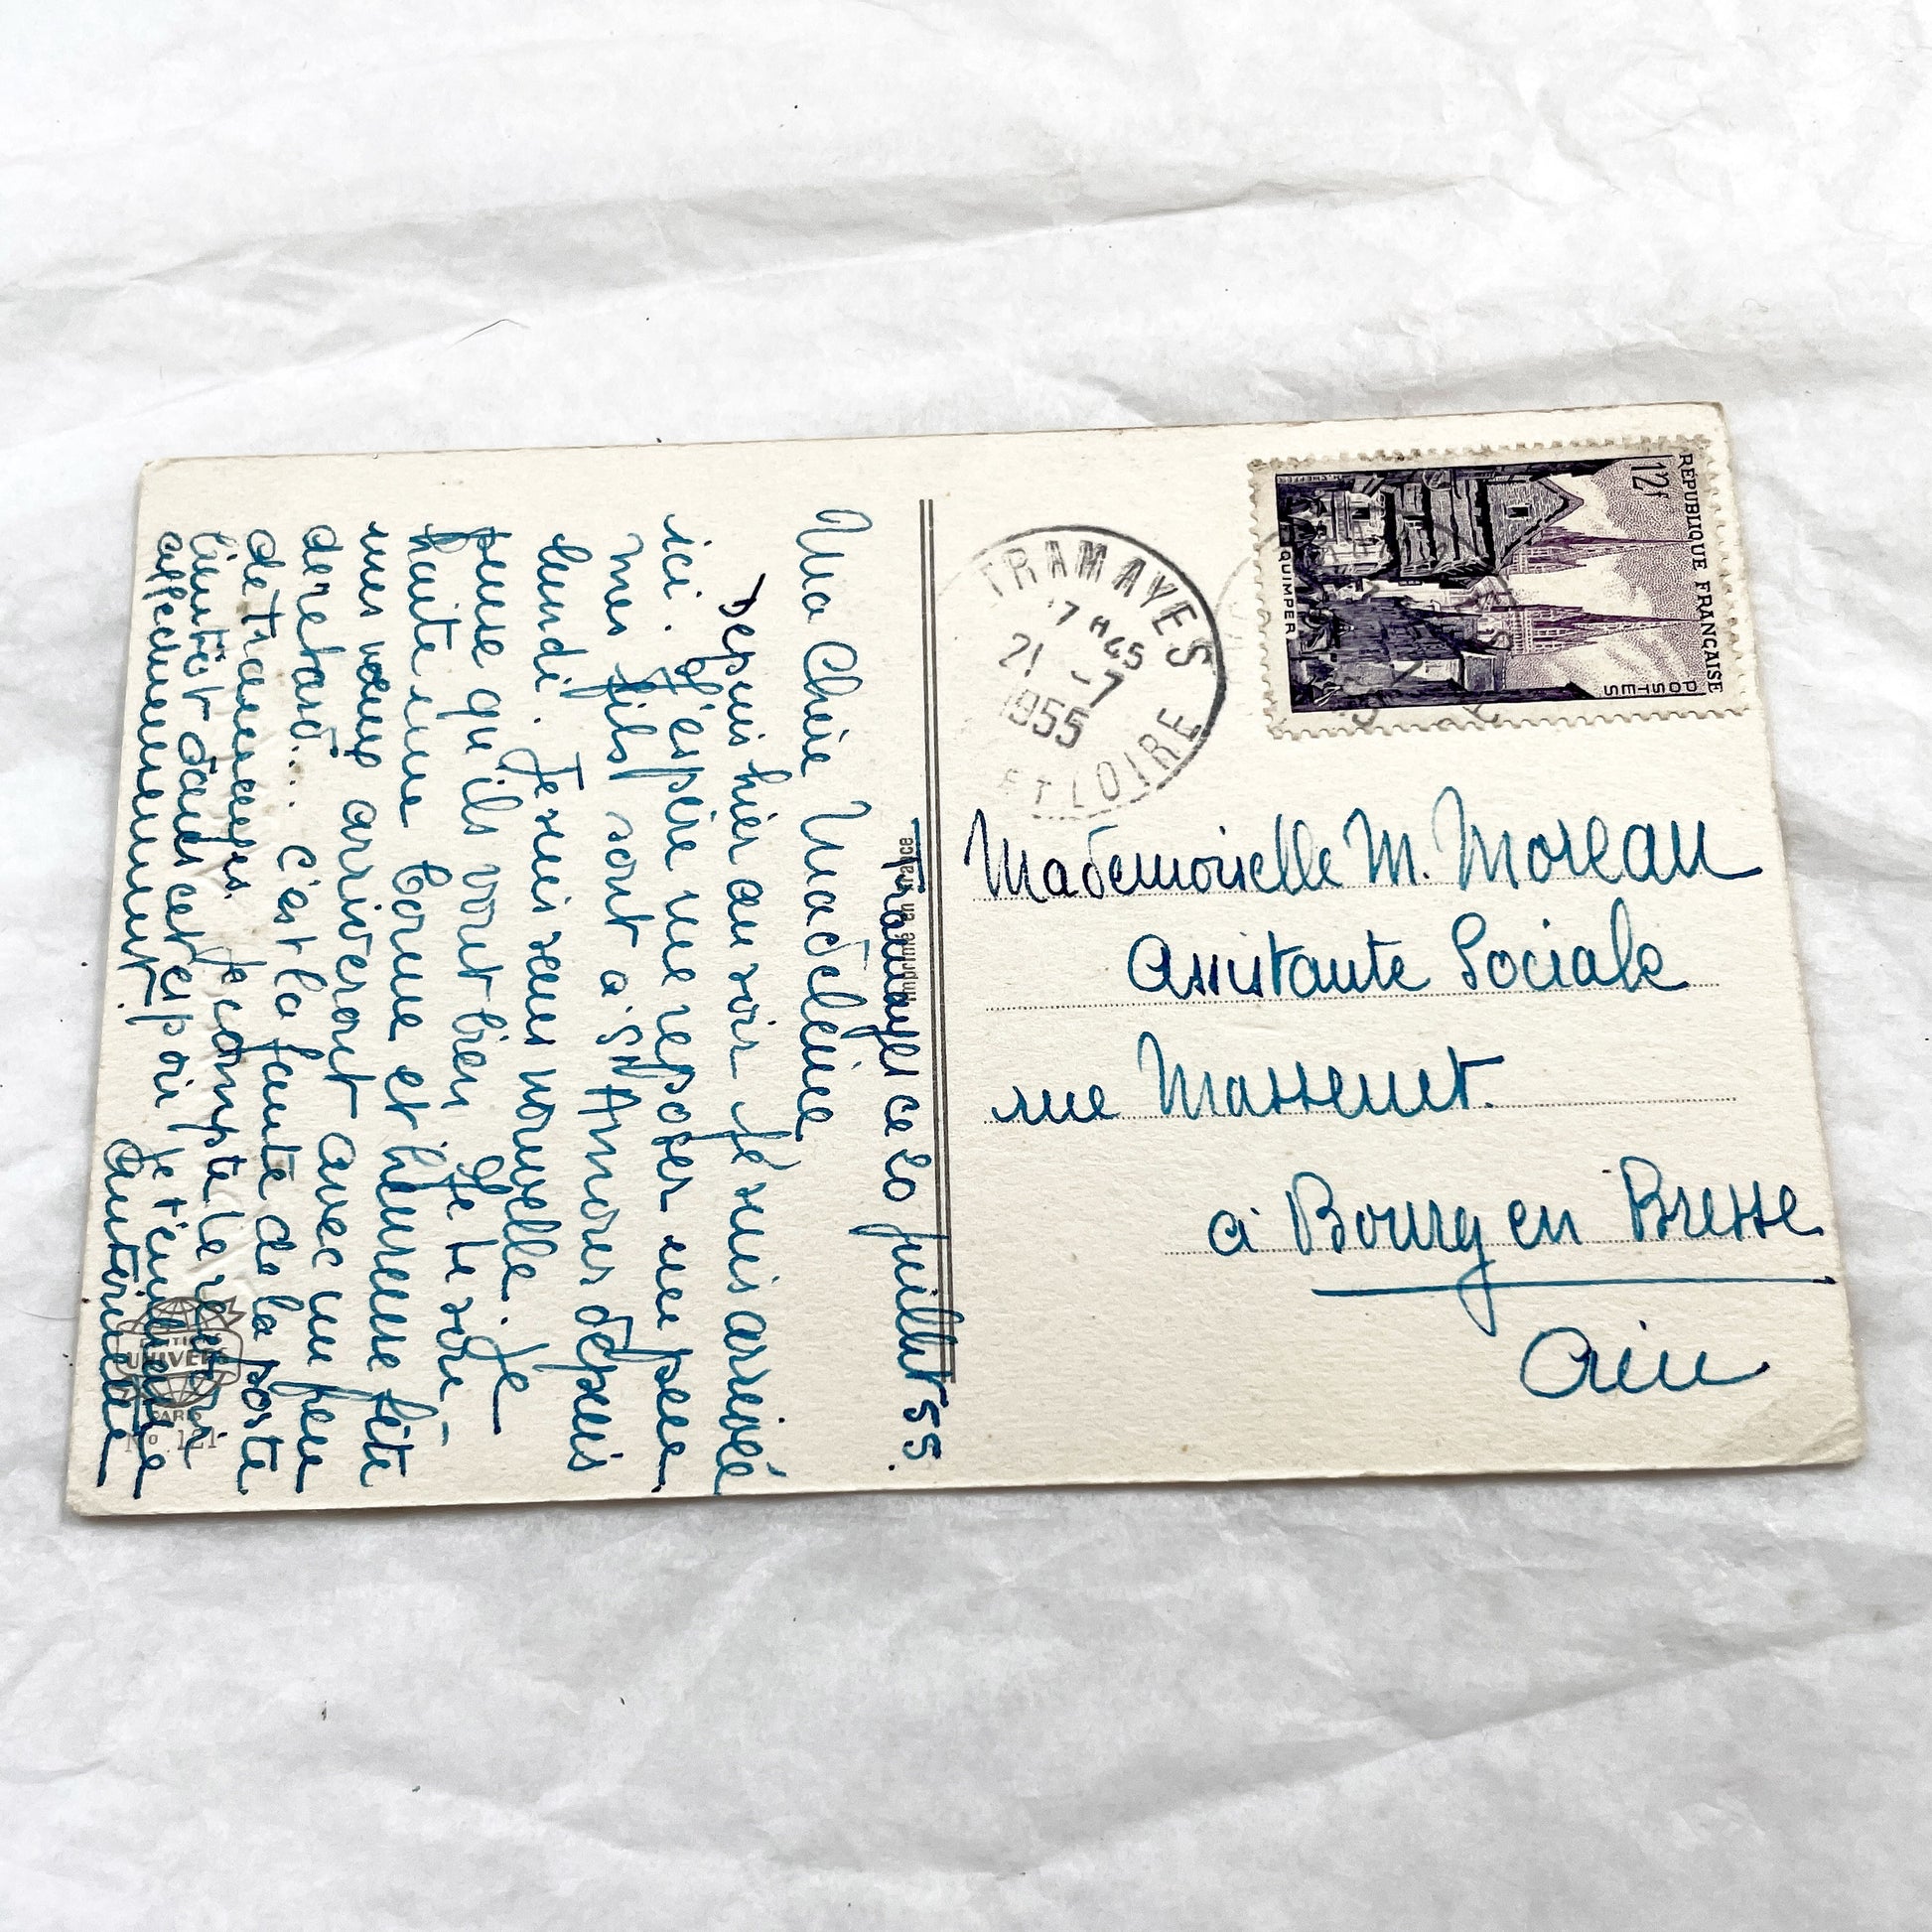 Tramayes ce 20 juillet 55.
Ma Chère Madeleine
Depuis hier au soir je suis arrivée
ici. J'espère me reposer un peu
mes fils sont à St Amour depuis
lundi. Je suis sans nouvelle. Je
pense qu'ils vont bien. Je te sou-
haite une bonne et heureuse fête
mes vœux arriveront avec un peu
de retard... c'est la faute de la poste
de Tramayes je compte te revoir
bientôt dans cet espoir je t'embrasse
affectueusement.
Imprimé en France
EDITIONS
UNIVERS
PARIS
No 121
RÉPUBLIQUE FRANÇAISE
12f
POSTES
QUIMPER
TRAMAYES
17 H45
21 - 7
1955
ET LOIRE
Mademoiselle M. Moreau
Assistante Sociale
rue Massenet.
à Bourg en Bresse
Ain